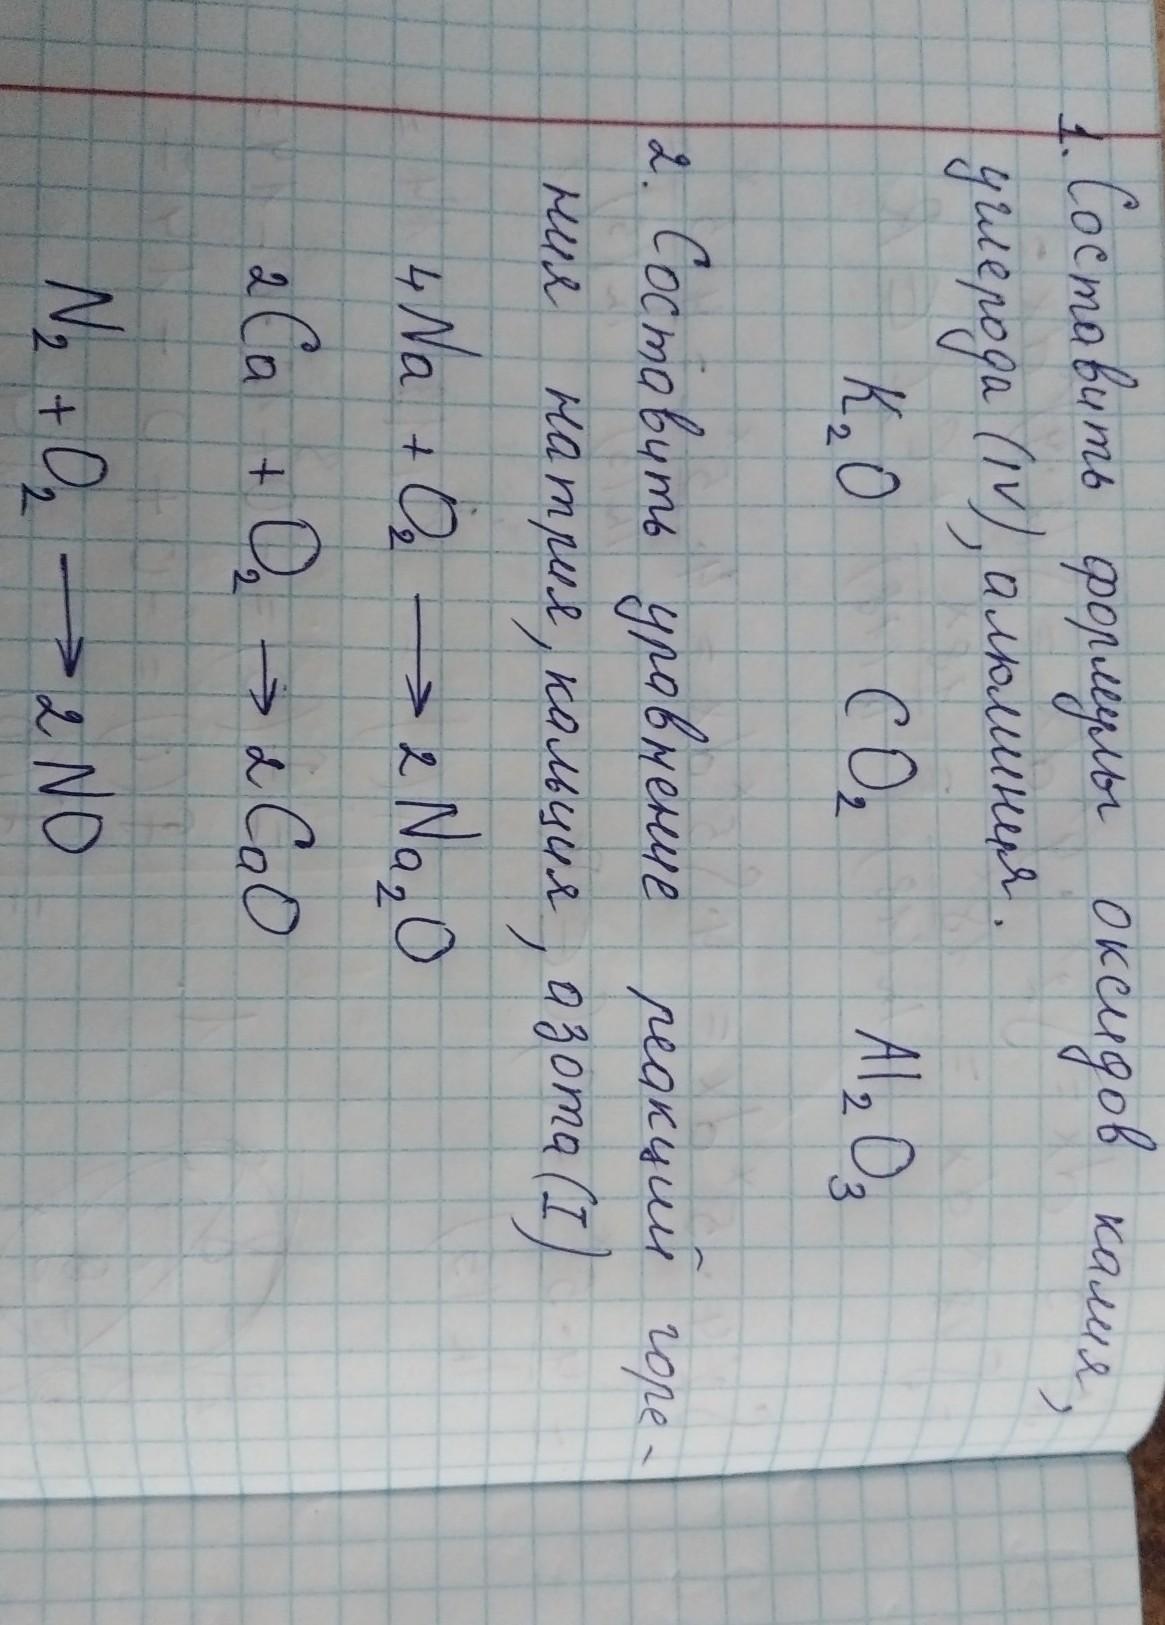 1. Составить формулы оксидов калия,
углерода (IV), алюминия.
K₂O CO₂ Al₂O₃
2. Составить уравнение реакций горе-
ния натрия, кальция, азота (I)
4Na + O₂ → 2Na₂O
2Ca + O₂ → 2CaO
N₂ + O₂ → 2NO